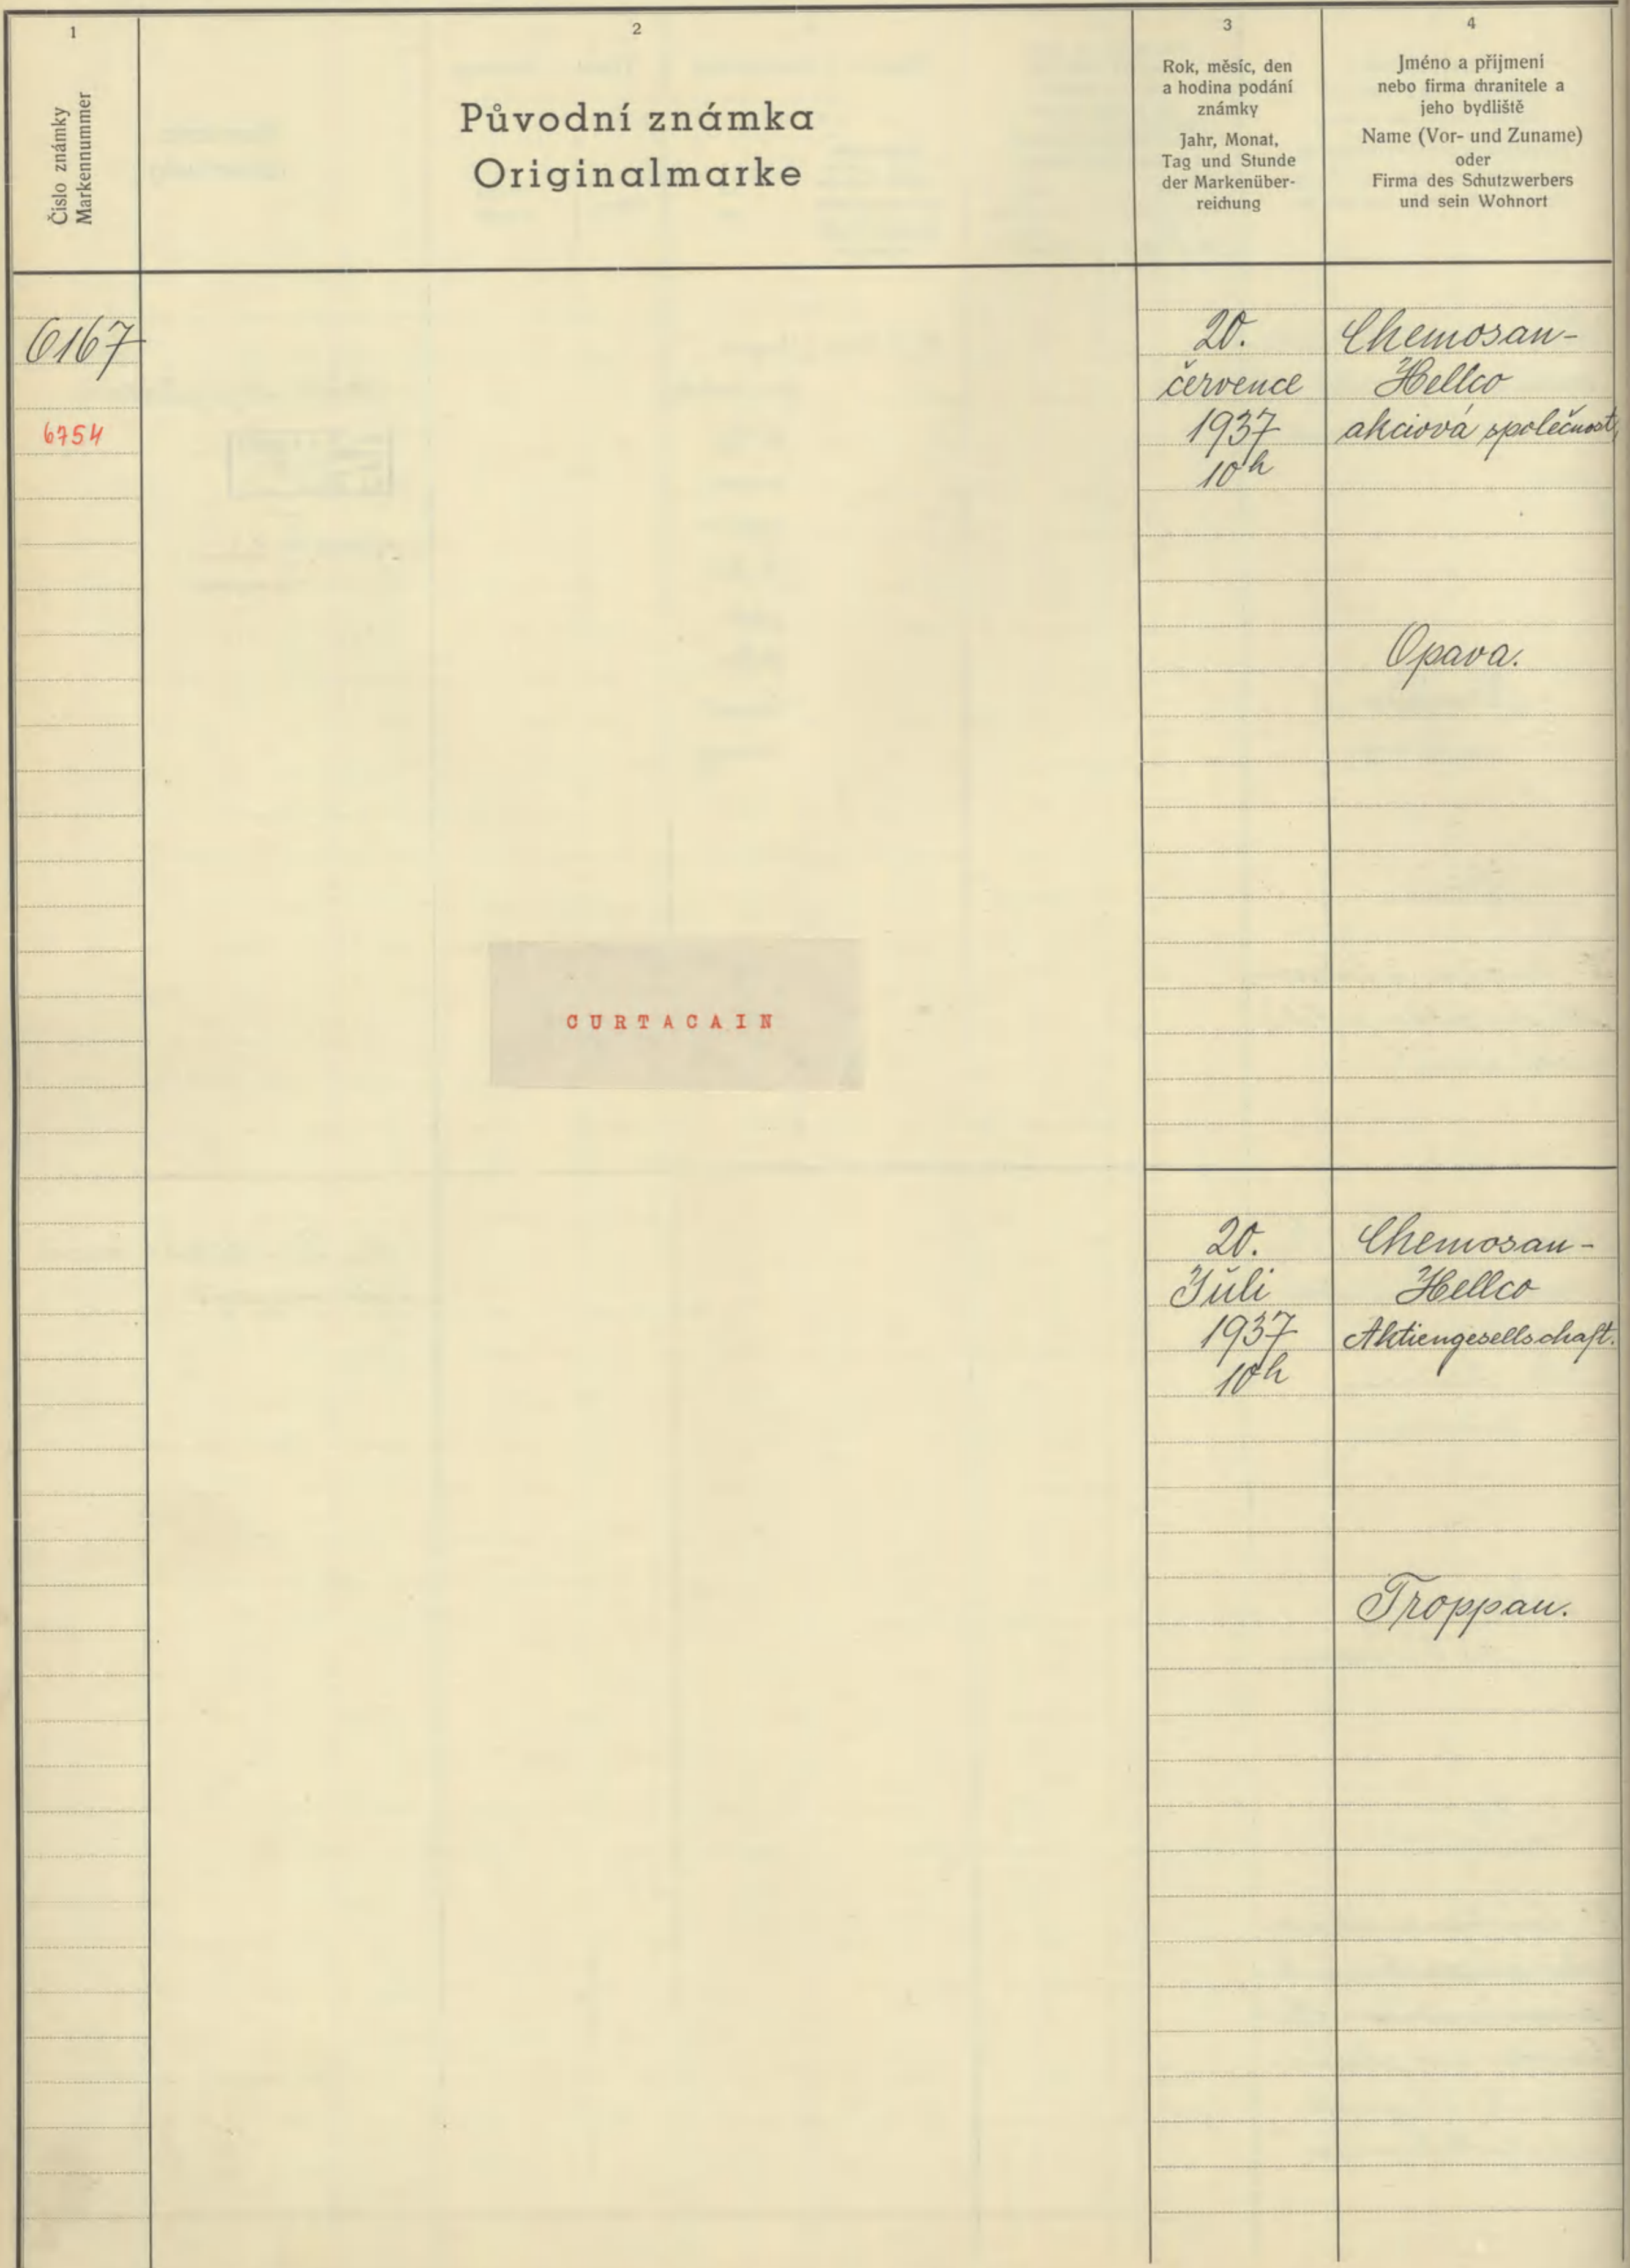 1
Číslo známky
Markennummer
2
Původní známka
Originalmarke
3
Rok, měsíc, den
a hodina podání
známky
Jahr, Monat,
Tag und Stunde
der Markenüber-
reichung
4
Jméno a příjmení
nebo firma chranitele a
jeho bydliště
Name (Vor- und Zuname)
oder
Firma des Schutzwerbers
und sein Wohnort
6167
6754
20.
července
1937
10h
Chemosan-
Hellco
akciová společnost,
Opava.
CURTACAIN
20.
Juli
1937
10h
Chemosan-
Hellco
Aktiengesellschaft.
Troppau.